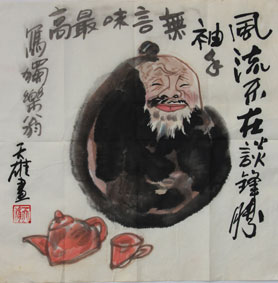 風流不在談鋒勝
袖手
無言
味最高
寫獨樂翁
天雄畫